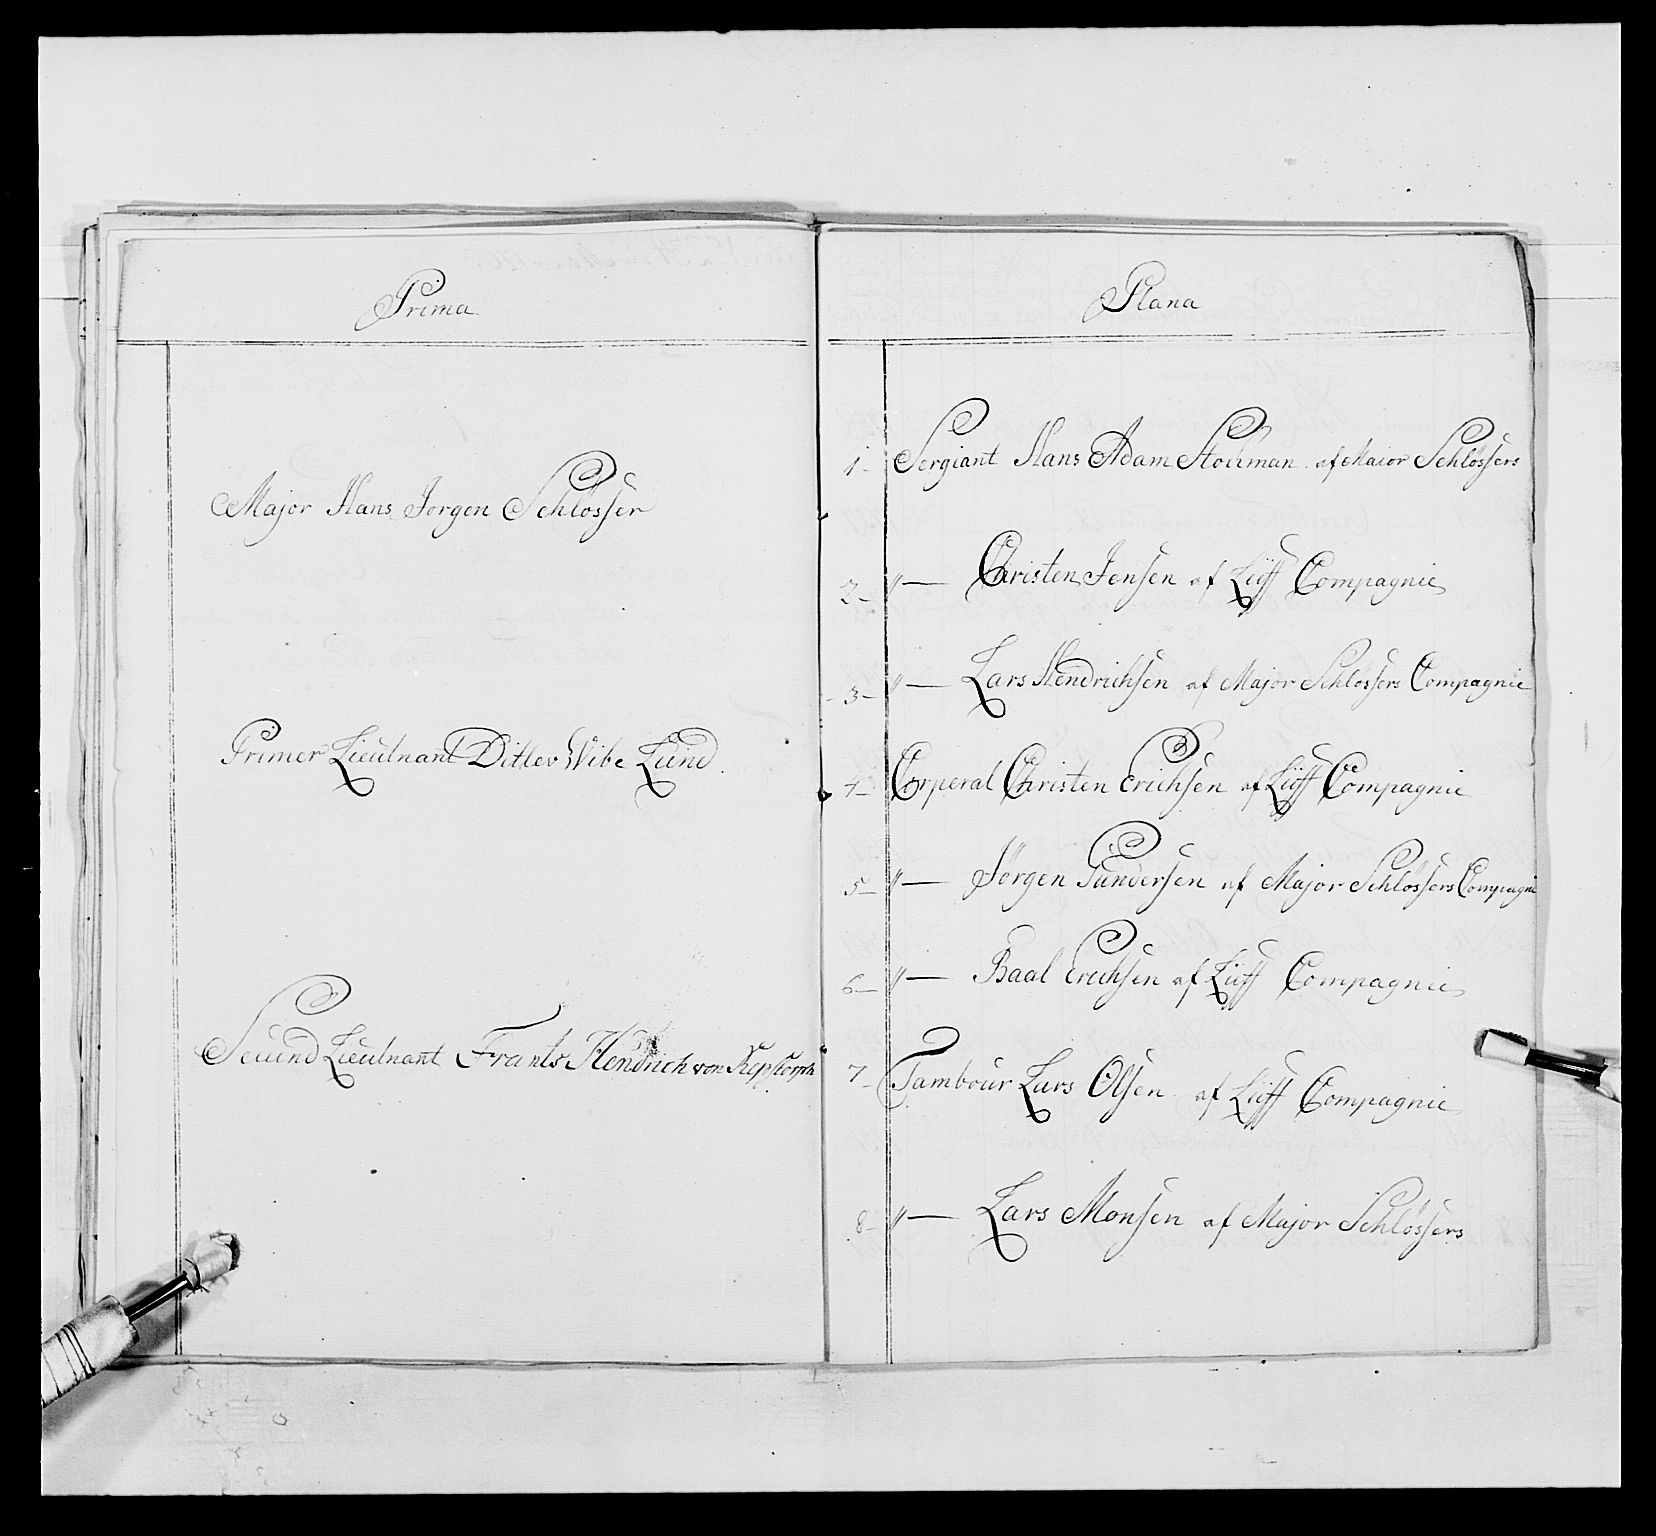 Prima
Major Hans Jørgen Schløsser
Primer Lieutnant Ditlev Wibe Lund
Secund Lieutnant Frants Hendrich von
Plana
1- Sergiant Hans Adam Stockman af Maior Schløssers
2- "— Christen Jensen af Liff Compagnie
3- "— Lars Hendrichsen af Major Schløssers Compagnie
4- Corperal Christen Erichsen af Liff Compagnie
5- "— Jørgen Gundersen af Major Schløssers Compagni
6- "— Baal Erichsen af Liff Compagnie
7- Tambour Lars Olsen af Liff Compagnie
8- "— Lars Monsen af Major Schløssers